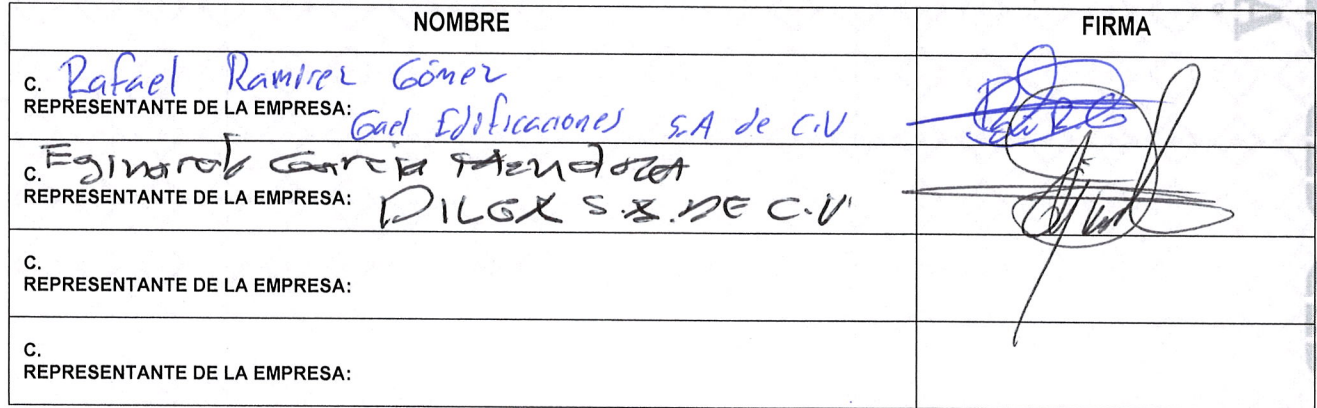 NOMBRE FIRMA
C. Rafael Ramirez Gómez
REPRESENTANTE DE LA EMPRESA: Gael Edificaciones S.A de C.V
C. García Mendoza
REPRESENTANTE DE LA EMPRESA: DILGX S.A. DE C.V.
C.
REPRESENTANTE DE LA EMPRESA:
C.
REPRESENTANTE DE LA EMPRESA: